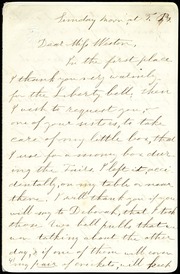 Sunday noon at
Dear Miss Weston
In the first place
I thank you very warmly
for the Liberty bell, then
I wish to request you, or
one of your sisters, to take
care of my little box, that
I use for a money box dur
ing the Fair. I left it acci
dentally, on my table or near
there. I will thank you if you
will say to Deborah, that I took
those two bell pulls that she
was talking about the other
day, & if one of them will over
my pair of